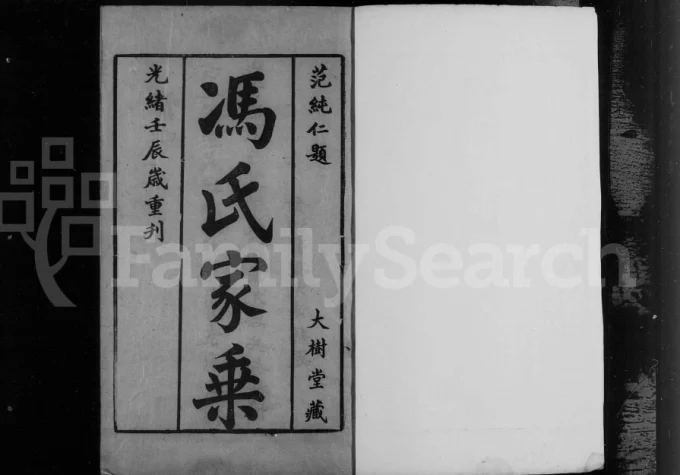 范純仁題
大樹堂藏
馮氏家乗
光緒壬辰歲重刋
FamilySearch